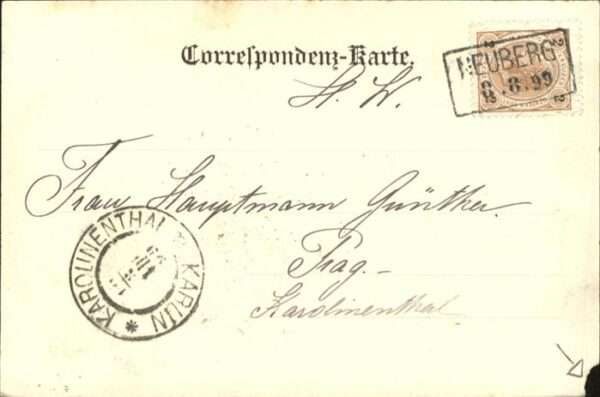 Correspondenz-Karte.
NEUBERG
8.8.99
2
2
2
Frau Hauptmann Günther.
Prag.-
Karolinenthal
KAROLINENTHAL * KARLIN *